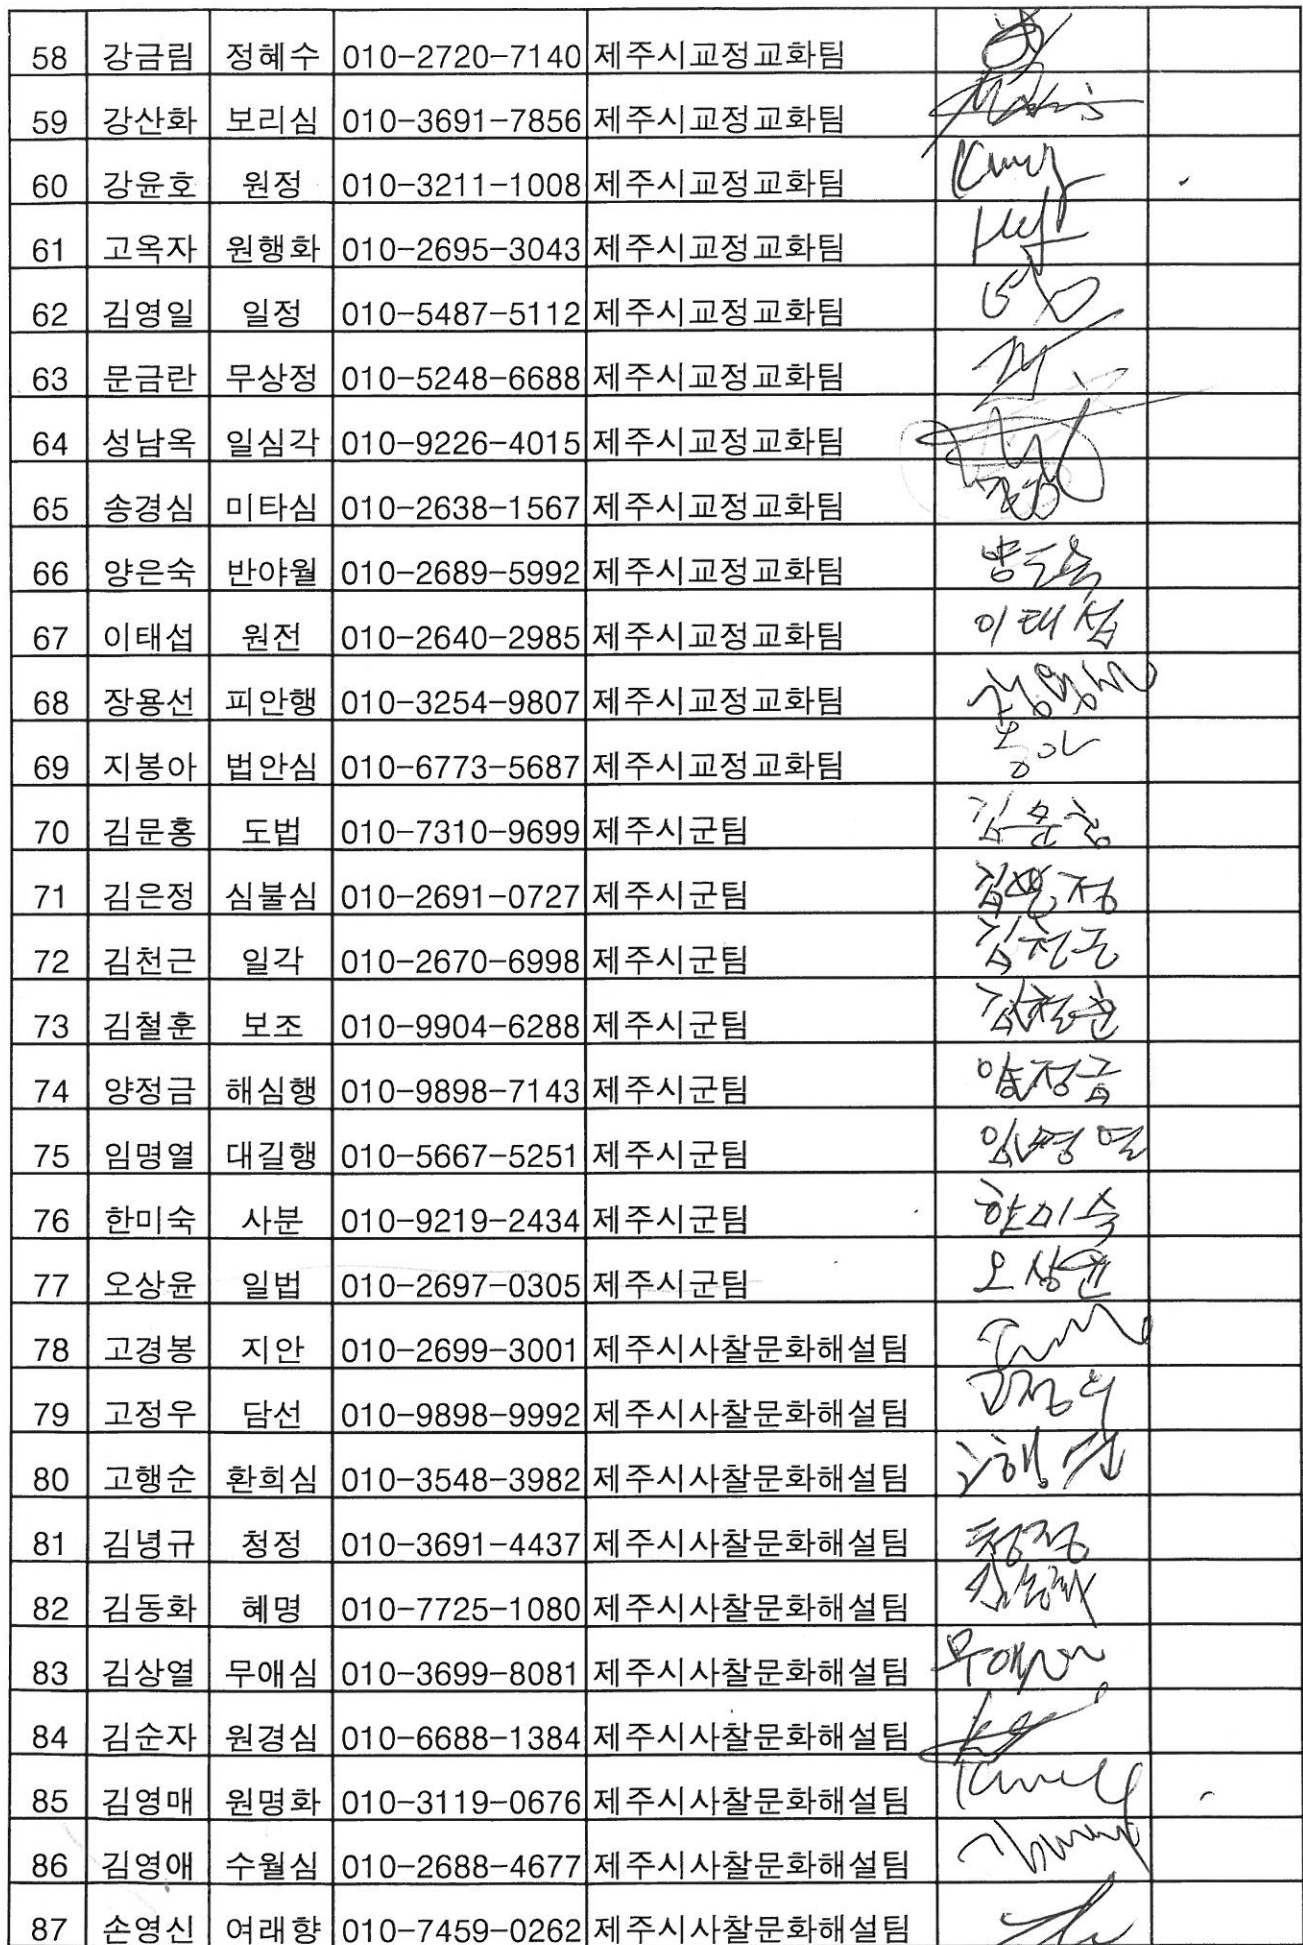 58 강금림 정혜수 010-2720-7140 제주시교정교화팀
59 강산화 보리심 010-3691-7856 제주시교정교화팀
60 강윤호 원정 010-3211-1008 제주시교정교화팀
61 고옥자 원행화 010-2695-3043 제주시교정교화팀
62 김영일 일정 010-5487-5112 제주시교정교화팀
63 문금란 무상정 010-5248-6688 제주시교정교화팀
64 성남옥 일심각 010-9226-4015 제주시교정교화팀
65 송경심 미타심 010-2638-1567 제주시교정교화팀
66 양은숙 반야월 010-2689-5992 제주시교정교화팀
67 이태섭 원전 010-2640-2985 제주시교정교화팀 이태섭
68 장용선 피안행 010-3254-9807 제주시교정교화팀
69 지봉아 법안심 010-6773-5687 제주시교정교화팀 봉아
70 김문홍 도법 010-7310-9699 제주시군팀 김문홍
71 김은정 심불심 010-2691-0727 제주시군팀 김은정
72 김천근 일각 010-2670-6998 제주시군팀 김천근
73 김철훈 보조 010-9904-6288 제주시군팀 김철훈
74 양정금 해심행 010-9898-7143 제주시군팀 양정금
75 임명열 대길행 010-5667-5251 제주시군팀 임명열
76 한미숙 사분 010-9219-2434 제주시군팀 한미숙
77 오상윤 일법 010-2697-0305 제주시군팀 오상윤
78 고경봉 지안 010-2699-3001 제주시사찰문화해설팀
79 고정우 담선 010-9898-9992 제주시사찰문화해설팀 고정우
80 고행순 환희심 010-3548-3982 제주시사찰문화해설팀 고행순
81 김녕규 청정 010-3691-4437 제주시사찰문화해설팀 청정
82 김동화 혜명 010-7725-1080 제주시사찰문화해설팀 김동화
83 김상열 무애심 010-3699-8081 제주시사찰문화해설팀 무애심
84 김순자 원경심 010-6688-1384 제주시사찰문화해설팀
85 김영매 원명화 010-3119-0676 제주시사찰문화해설팀
86 김영애 수월심 010-2688-4677 제주시사찰문화해설팀
87 손영신 여래향 010-7459-0262 제주시사찰문화해설팀